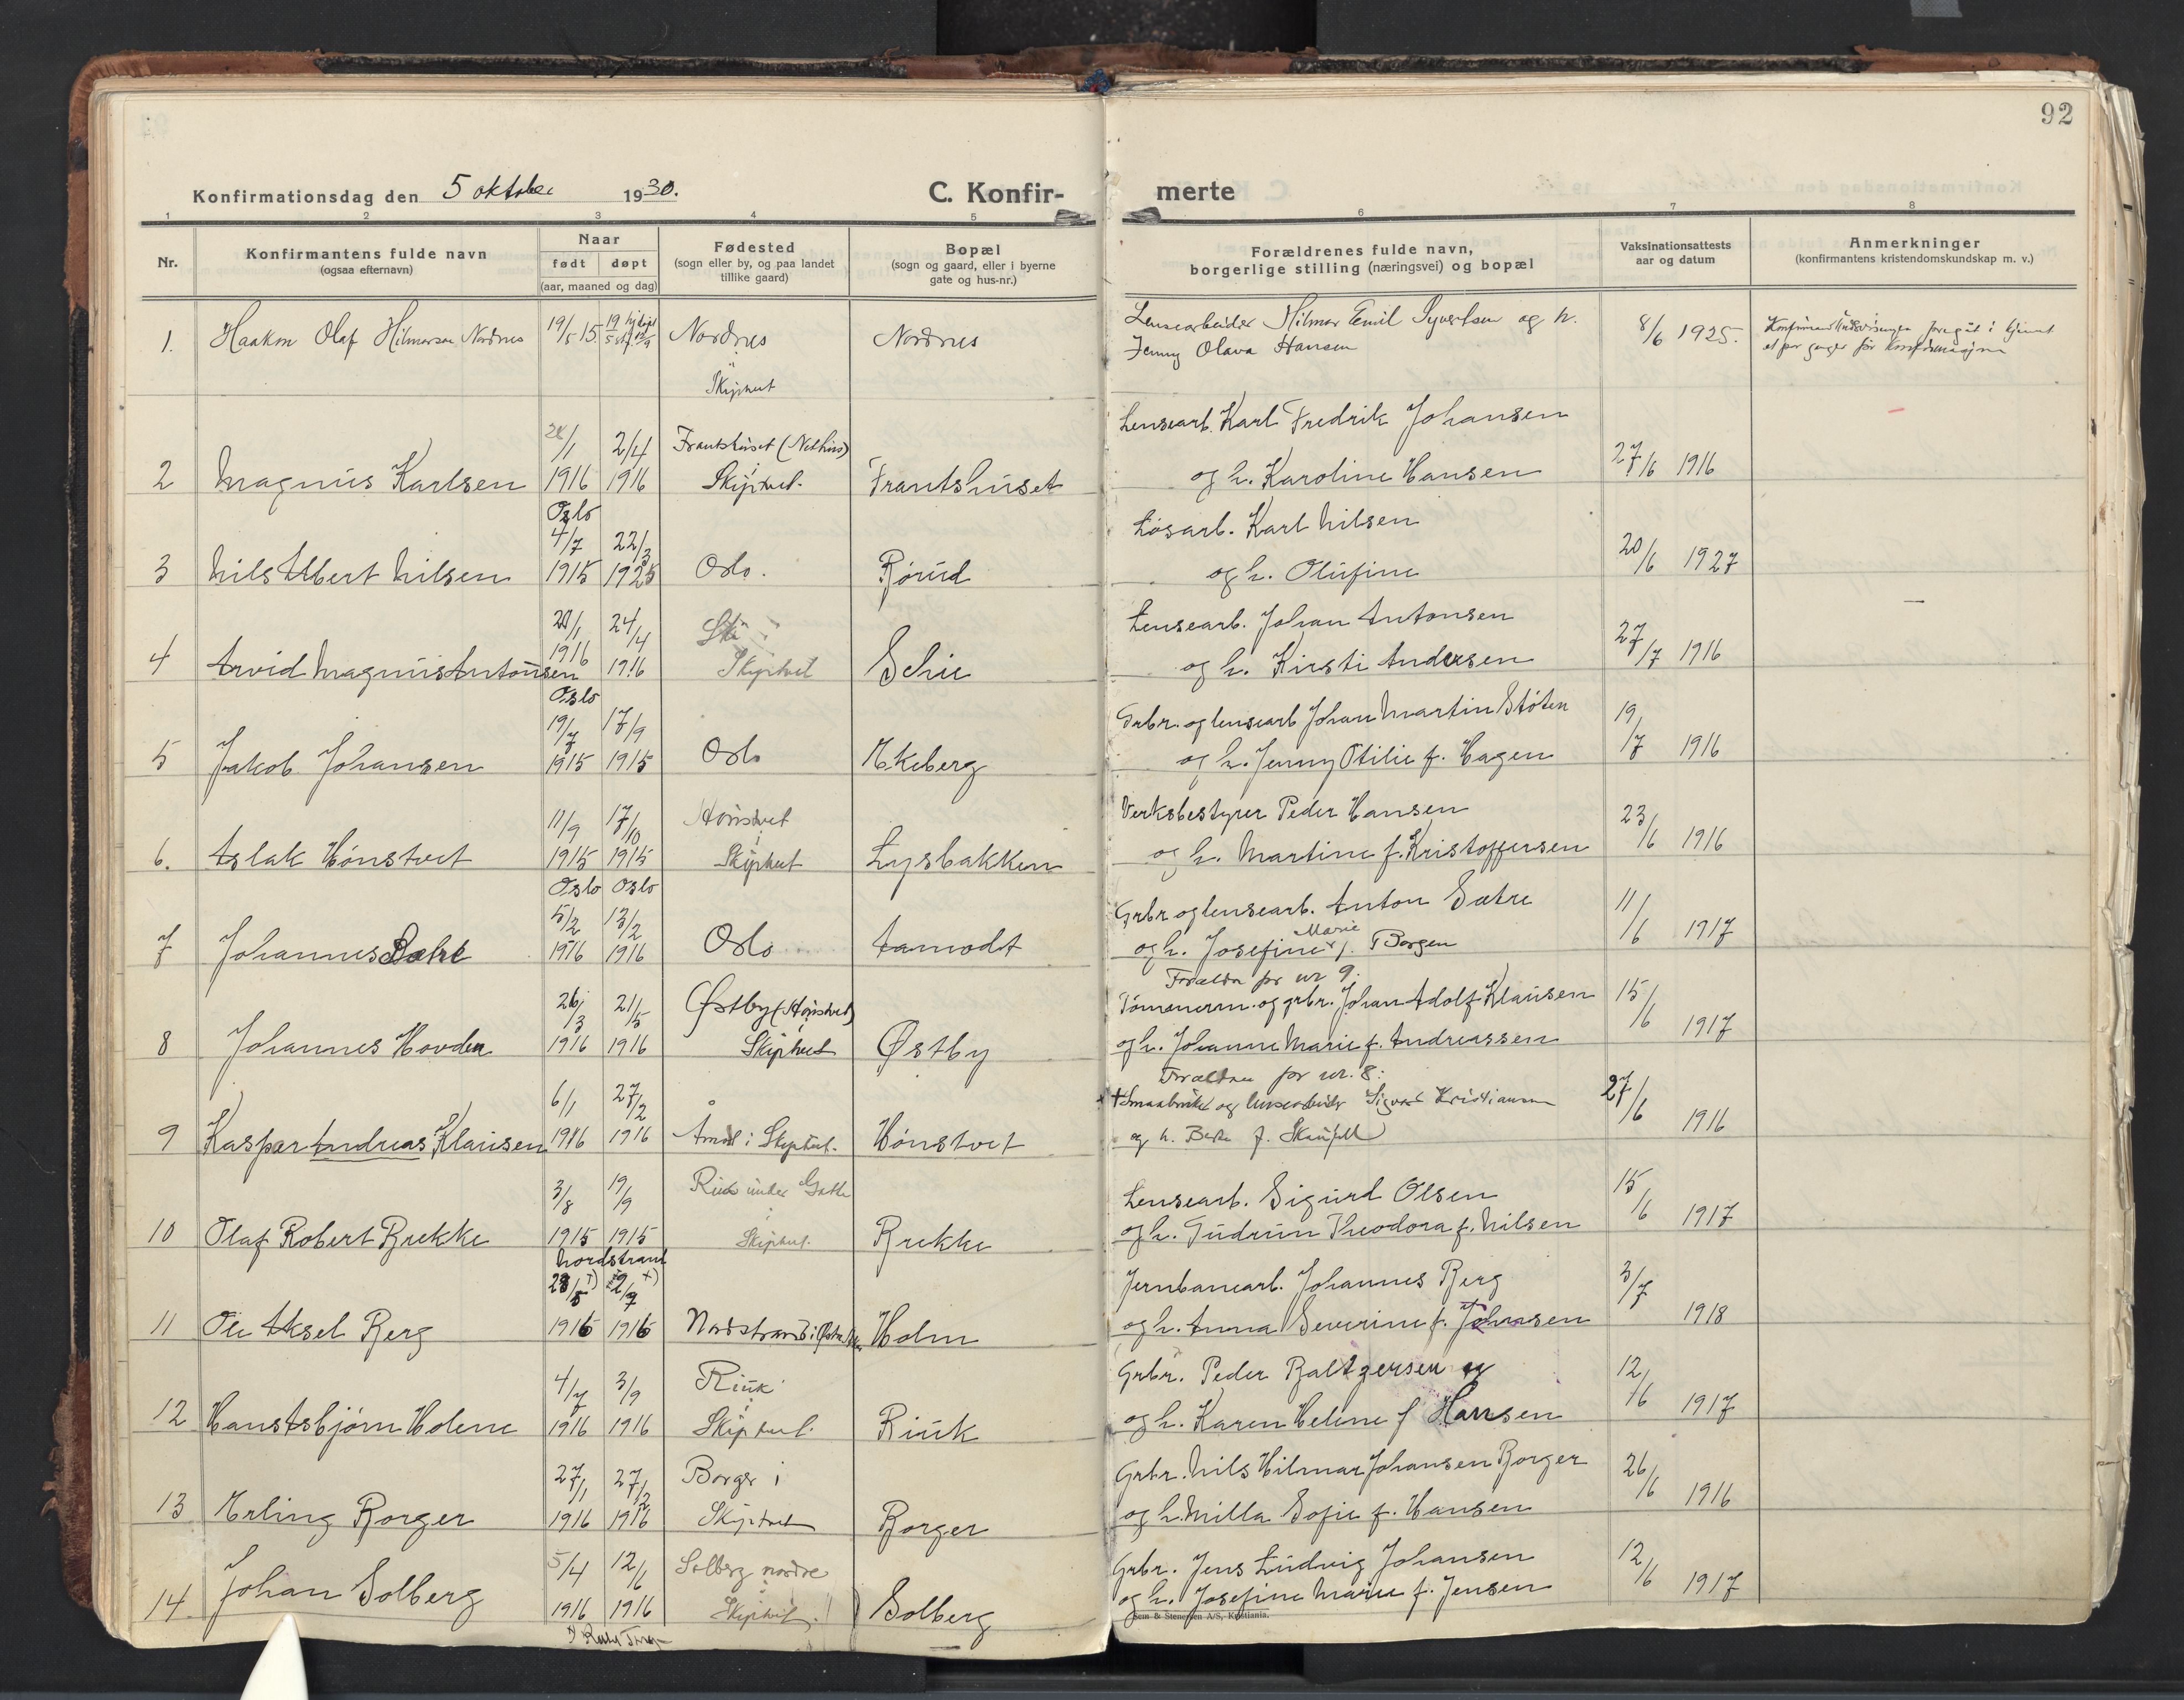 92
Konfirmationsdag den 5 oktober 1930.
C. Konfir-
merte
1 2 3 4 5 6 7 8
Nr.
Konfirmantens fulde navn
(ogsaa efternavn)
Naar
født døpt
(aar, maaned og dag)
Fødested
(sogn eller by, og paa landet
tillike gaard)
Bopæl
(sogn og gaard, eller i byerne
gate og hus-nr.)
Forældrenes fulde navn,
borgerlige stilling (næringsvei) og bopæl
Vaksinationsattests
aar og datum
Anmerkninger
(konfirmantens kristendomskundskap m. v.)
1. Haakon Olaf Hilmarsen Nordnes 19/5 15. Nordnes
i
Skiptvet
Nordnes
Lensearbeider Hilmar Emil Syvertsen og h.
Jenny Olava Hansen
8/6 1925.
et par ganger før
2 Magnus Karlsen
/1 1916
2/4 1916
Frantshuset
i
Skiptvet.
Frantshuset
Lensearb. Karl Fredrik Johansen
og h. Karoline Hansen
27/6 1916
3 Nils Albert Nilsen
Oslo
4/7 1915
22/3 1925
Oslo.
Børud
Løsarb. Karl Nilsen
og h. Olufine
20/6 1927
4 Arvid Magnus Antonsen
/1 1916
24/4 1916
Skiptvet
Lensearb. Johan Antonsen
og h. Kirsti Andersen
27/7 1916
5 Jakob Johansen
Oslo
19/7 1915
17/9 1915
Oslo
Ekeberg
Grbr. og lensearb Johan Martin Støten
og h. Jenny Otilie f. Hagen
19/7 1916
6. Aslak Hønstvet
11/9 1915
17/10 1915
Hønstvet
i
Skiptvet
Lysbakken
Verksbestyrer Peder Hansen
og h. Martine f. Kristoffersen
23/6 1916
7 Johannes Sætre
Oslo Oslo
5/2 1916
13/2 1916
Oslo
Aamodt
Grbr og lensearb. Anton Sætre
og h. Josefine Marie f. Borgen
11/6 1917
8 Johannes Hovden
26/3 1916
21/5 1916
Østby (Hønstvet)
i
Skiptvet
Østby
Forældre for nr 9:
Tømmerm. og grbr. Johan Adolf Klausen
og h. Johanne Marie f. Andreassen
15/6 1917
9 Kaspar Andreas Klausen
6/1 1916
27/2 1916
i Skiptvet.
Hønstvet
Forældre for nr. 8:
Smaabruker og lensearbeider Sigvart Kristiansen
og h. Berte f.
27/6 1916
10 Olaf Robert Brekke
3/8 1915
19/9 1915
under
i
Skiptvet.
Brekke
Lensearb. Sigurd Olsen
og h. Gudrun Theodora f. Nilsen
15/6 1917
11 Ole Aksel Berg
Nordstrand
28/5 +) 1916
2/7 +) 1916
Nordstrand i
Holm
Jernbanearb. Johannes Berg
og h. Anna Severine f. Johnsen
3/7 1918
12 Hans Asbjørn Holene
4/7 1916
3/9 1916
Riuk
i
Skiptvet.
Riuk
Grbr. Peder Baltzersen og
og h. Karen Helene f Hansen
12/6 1917
13 Erling Borger
27/1 1916
27/2 1916
Borger i
Skiptvet
Borger
Grbr. Nils Hilmar Johansen Borger
og h. Milla Sofie f. Hansen
26/6 1916
14. Johan Solberg
5/4 1916
12/6 1916
Solberg nordre
i
Skiptvet.
Solberg
Grbr. Jens Ludvig Johansen
og h. Josefine Marie f. Jensen
12/6 1917
Sem & Stenersen A/S, Kristiania.